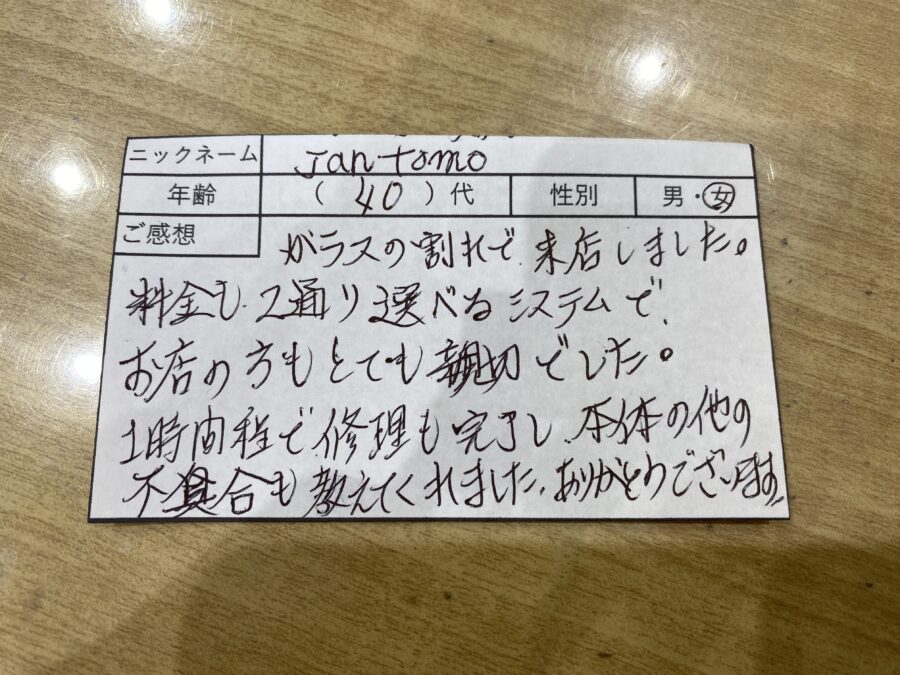 ニックネーム Jan.tomo
年齢 (40)代 性別 男・女
ご感想 ガラスの割れで、来店しました。
料金も、2通り選べるシステムで、
お店の方もとても親切でした。
1時間程で、修理も完了し、本体の他の
不具合も教えてくれました、ありがとうございます。